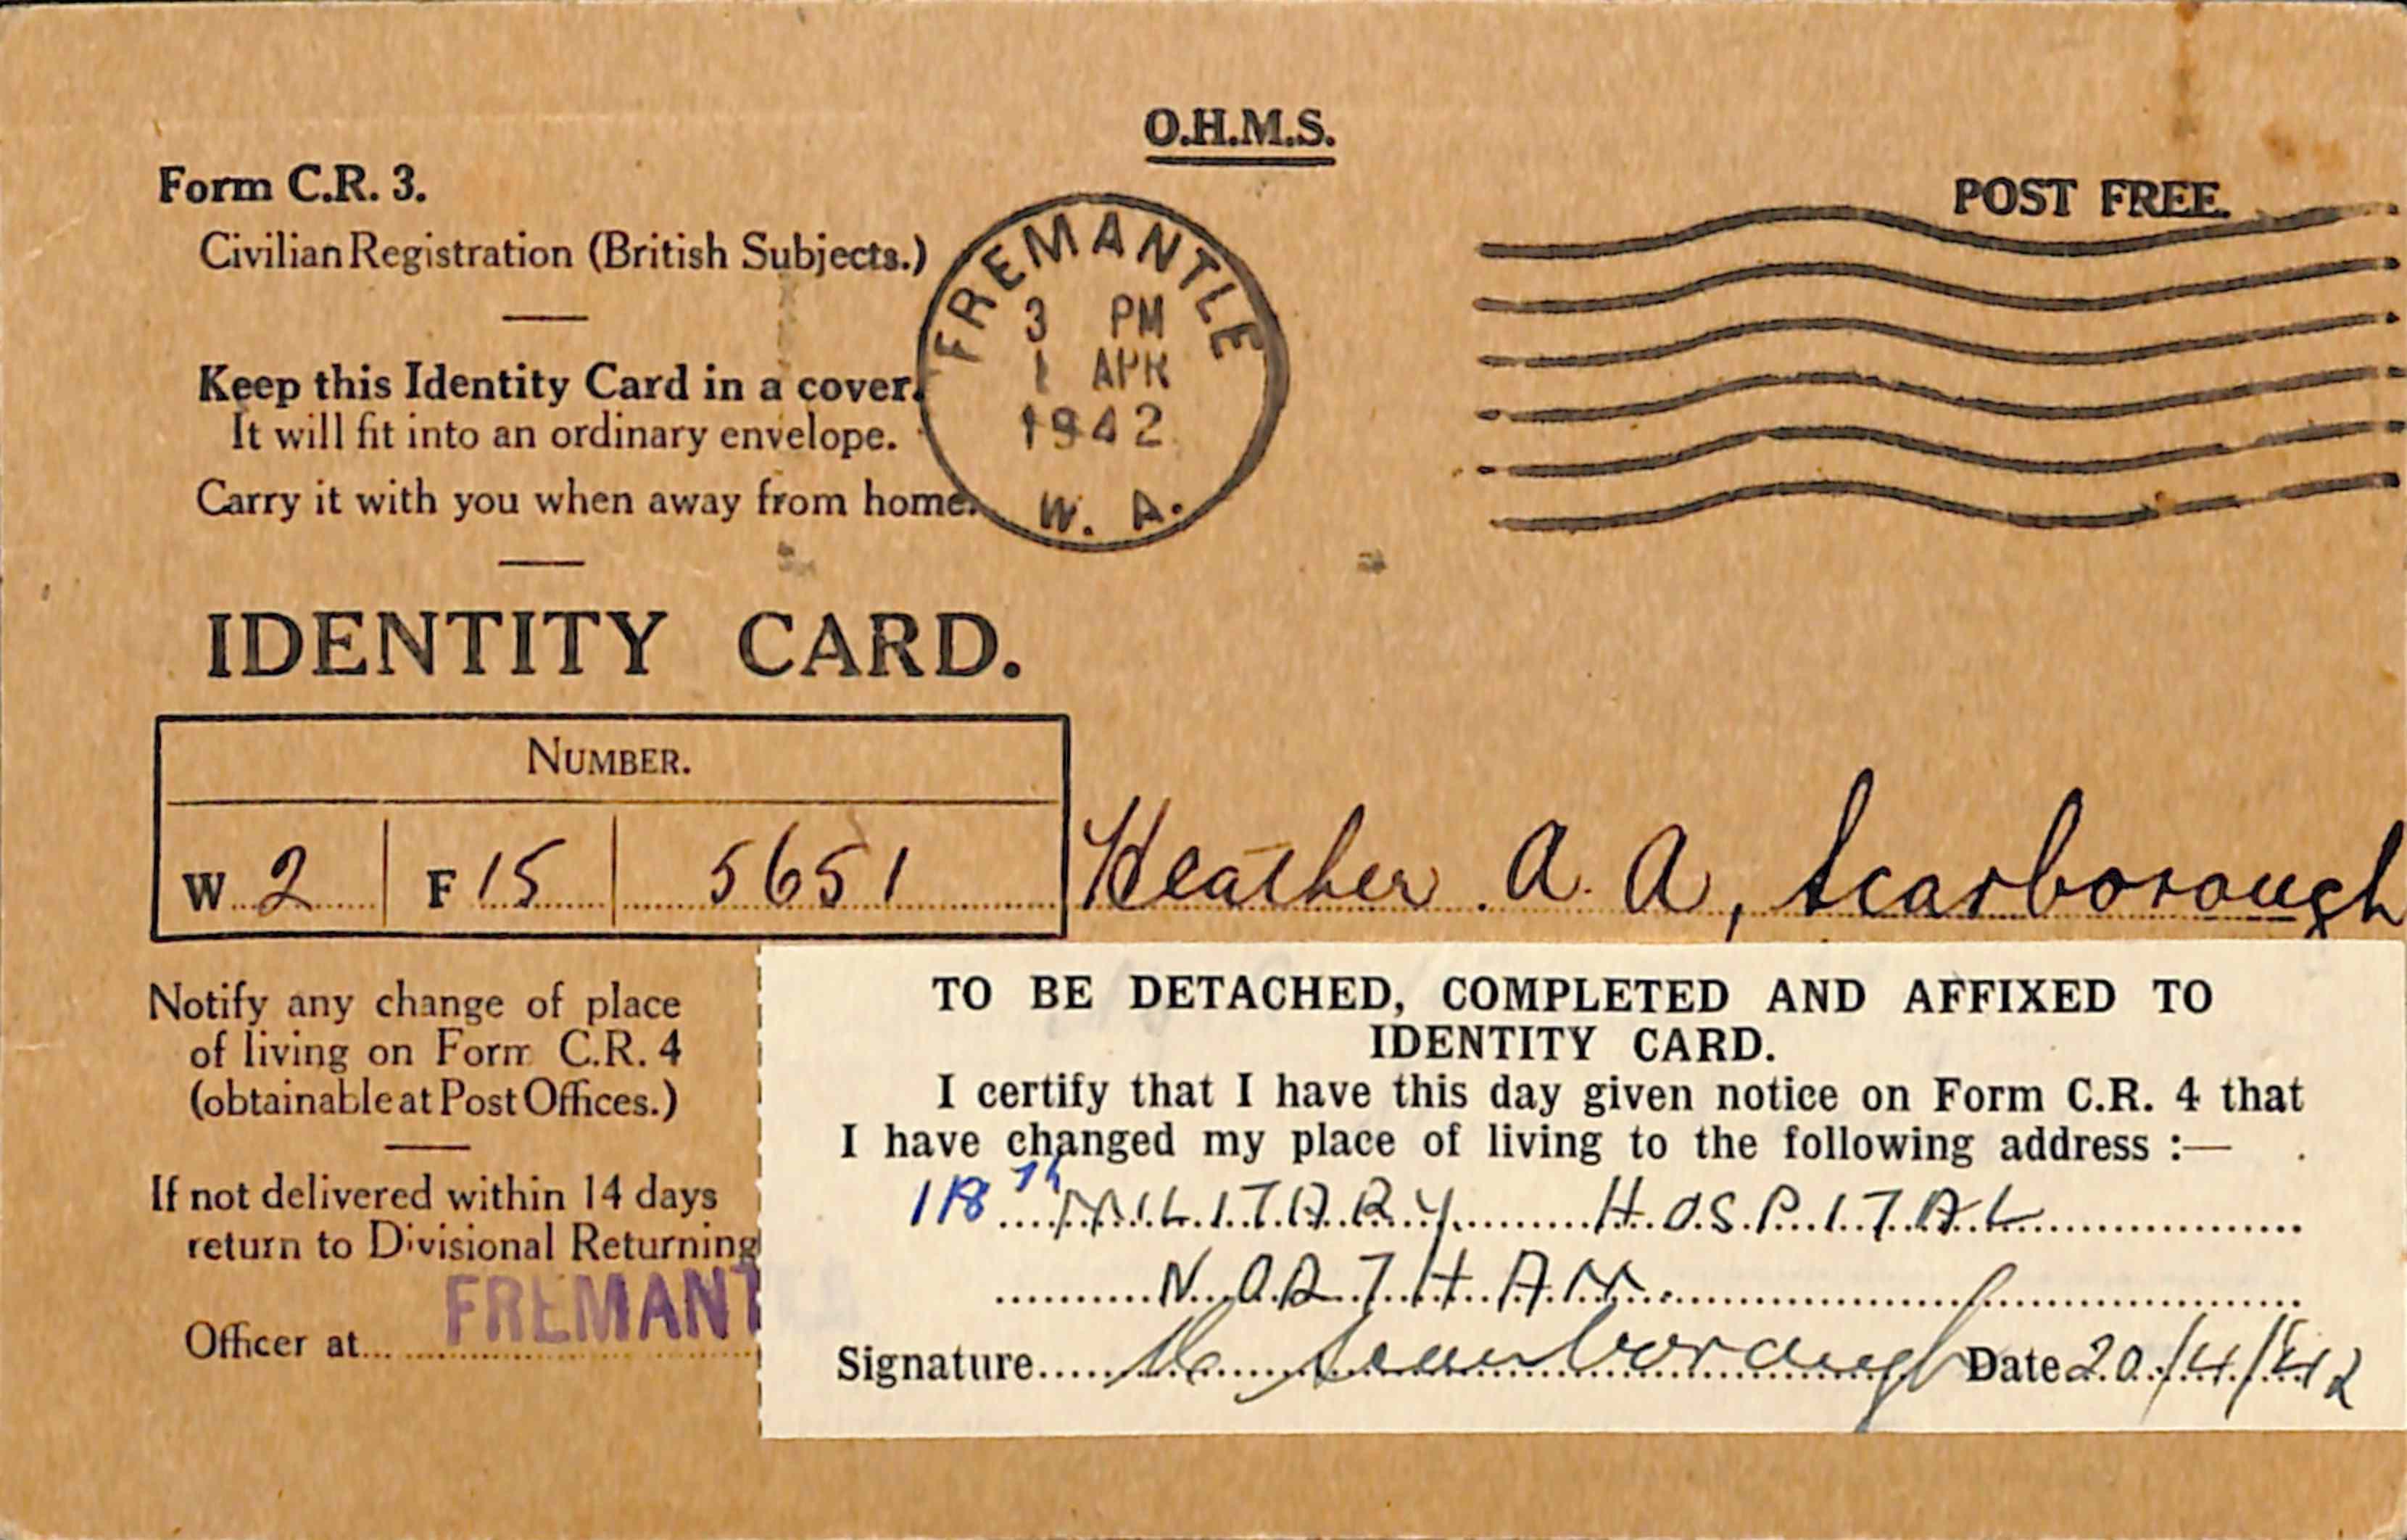 O.H.M.S.
Form C.R. 3.
POST FREE.
Civilian Registration (British Subjects.)
FREMANTLE
3 PM
1 APR
1942
W. A.
Keep this Identity Card in a cover.
It will fit into an ordinary envelope.
Carry it with you when away from home.
IDENTITY CARD.
NUMBER.
W 2 F 15 5651
Heather A. A, Scarborough
Notify any change of place
of living on Form C.R. 4
(obtainable at Post Offices.)
If not delivered within 14 days
return to Divisional Returning
Officer at FREMANT
TO BE DETACHED, COMPLETED AND AFFIXED TO
IDENTITY CARD.
I certify that I have this day given notice on Form C.R. 4 that
I have changed my place of living to the following address :—
118th MILITARY HOSPITAL
NORTHAM
Signature H. Scarborough Date 20/4/42